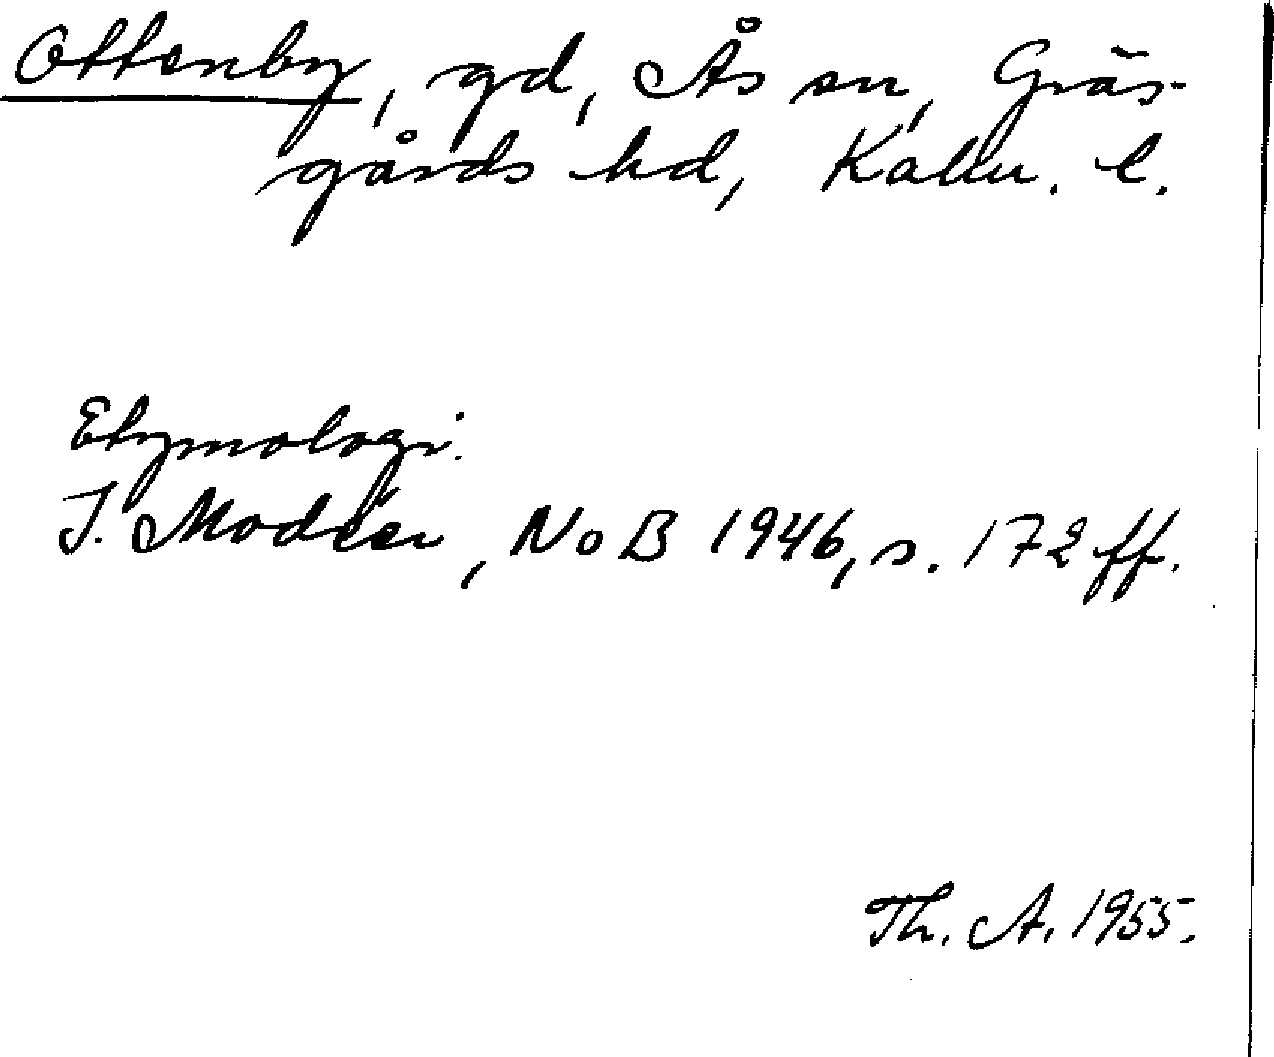 Ottenby, gd, Ås sn, Gräs-
gårds hd, Kalm. l.
Etymologi.
I. Modéer, NoB 1946, s. 172 ff.
Th. A. 1955.